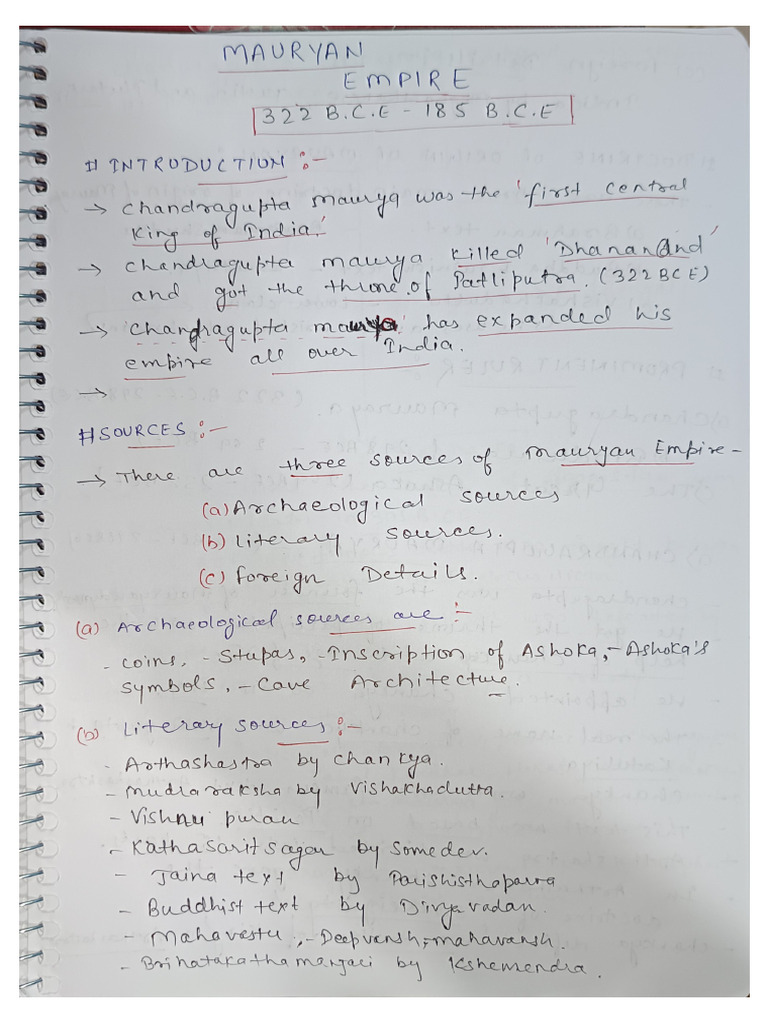 MAURYAN
EMPIRE
322 B.C.E - 185 B.C.E
# INTRODUCTION :-
→ Chandragupta maurya was the 'first central
King of India.'
→ Chandragupta maurya killed 'Dhananand'
and got the throne of Patliputra. (322 BCE)
→ Chandragupta maurya has expanded his
empire all over India.
→
# SOURCES :-
→ There are three sources of mauryan Empire -
(a) Archaeological sources
(b) Literary sources.
(c) Foreign Details.
(a) Archaeological sources are :-
- coins, - Stupas, - Inscription of Ashoka, - Ashoka's
symbols, - Cave Architecture.
(b) Literary sources :-
- Arthashastra by Chankya.
- Mudraraksha by Vishakhadutta.
- Vishnu puran
- Kathasaritsagar by Somedev.
- Jaina text by Parishisthaparva
- Buddhist text by Divyavadan.
- Mahavastu, - Deepvansh, - mahavansh.
- Brihatakathamanjari by Kshemendra.